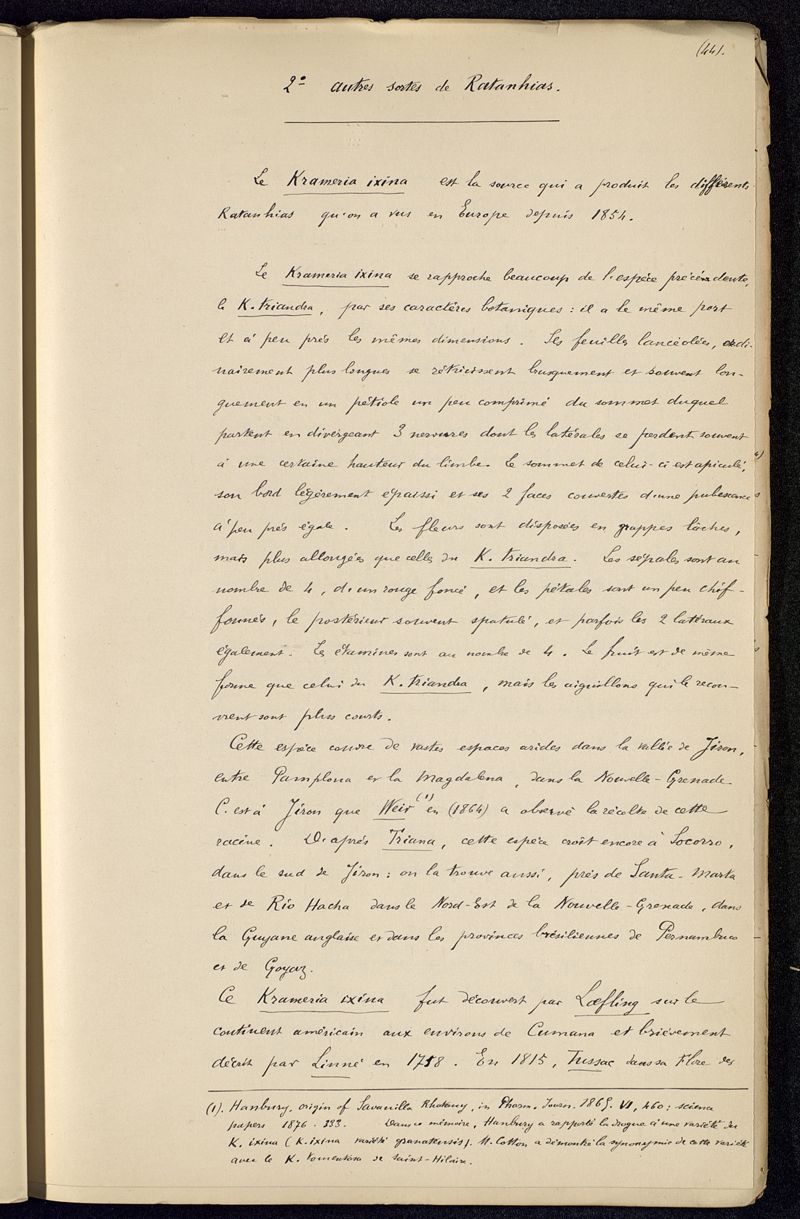 (44).
2° autres sortes de Ratanhias.
Le Krameria ixina est la source qui a produit les différents
Ratanhias qu'on a vus en Europe depuis 1854.
Le Krameria ixina se rapproche beaucoup de l'espèce précédente,
le K. triandra, par ses caractères botaniques : il a le même port
et à peu près les mêmes dimensions. Ses feuilles lancéolées, ordi-
nairement plus longues se rétrécissent brusquement et souvent lon-
guement en un pétiole un peu comprimé du sommet duquel
partent en divergeant 3 nervures dont les latérales se perdent souvent
à une certaine hauteur du limbe. Le sommet de celui-ci est apiculé,
son bord légèrement épaissi et ses 2 faces couvertes d'une pubescence
à peu près égale. Les fleurs sont disposées en grappes lâches,
mais plus allongées que celles du K. triandra. Les sépales sont au
nombre de 4, d'un rouge foncé, et les pétales sont un peu chif-
fonnés, le postérieur souvent spatulé, et parfois les 2 latéraux
également. Les étamines sont au nombre de 4. Le fruit est de même
forme que celui du K. triandra, mais les aiguillons qui le recou-
vrent sont plus courts.
Cette espèce couvre de vastes espaces arides dans la vallée de Jiron,
entre Pamplona et la Magdalena, dans la Nouvelle-Grenade
C'est à Jiron que Weir (1) en (1864) a observé la récolte de cette
racine. D'après Triana, cette espèce croît encore à Socorro,
dans le sud de Jiron : on la trouve aussi, près de Santa-Marta
et de Rio Hacha dans le Nord-Est de la Nouvelle-Grenade, dans
la Guyane anglaise et dans les provinces brésiliennes de Pernambuco
et de Goyaz.
Ce Krameria ixina fut découvert par Lœfling sur le
continent américain aux environs de Cumana et brièvement
décrit par Linné en 1758. En 1815, Tussac dans sa Flore des
(1). Hanbury, origin of Savanilla Rhatany, in Pharm. Journ. 1865. VI, 460 ; science
papers 1876. 333. Dans ce mémoire, Hanbury a rapporté la drogue à une variété du
K. ixina (K. ixina variété granatensis). M. Cotton a démontré la synonymie de cette variété
avec le K. tomentosa de Saint-Hilaire.